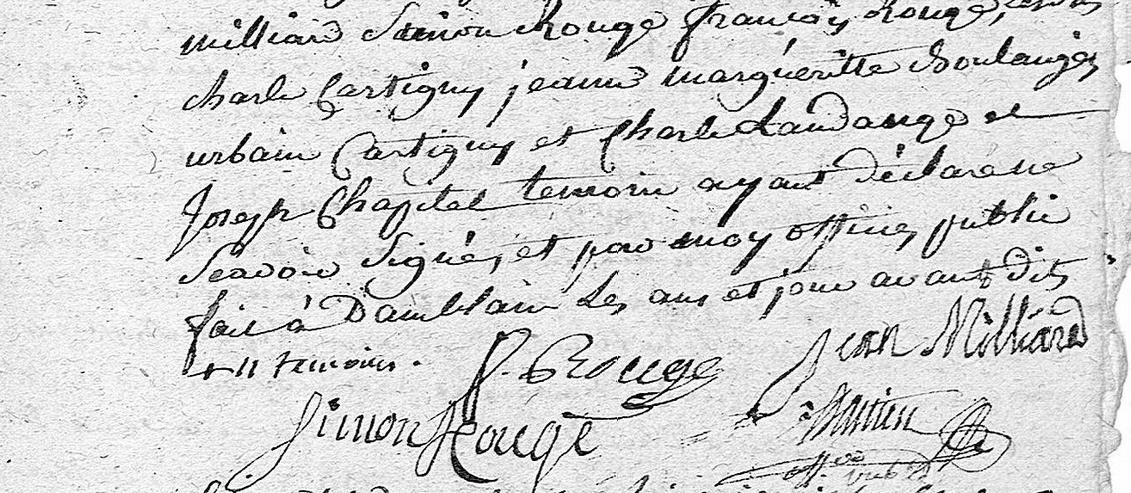 milliard Simon Rouge françois Rouge,
charle Cartigny jeanne marguéritte Boulangez
urbain Cartigny et Charle Laudange et
Joseph Chapitel temoin ayant déclare ne
Seavoir Signé, et par moy officiez public
fait à Damblain Les ans et jour avant dits
+ 11 temoins.
f. Rouge
Jean Milliard
Simon Rouge
Mutien
offier public